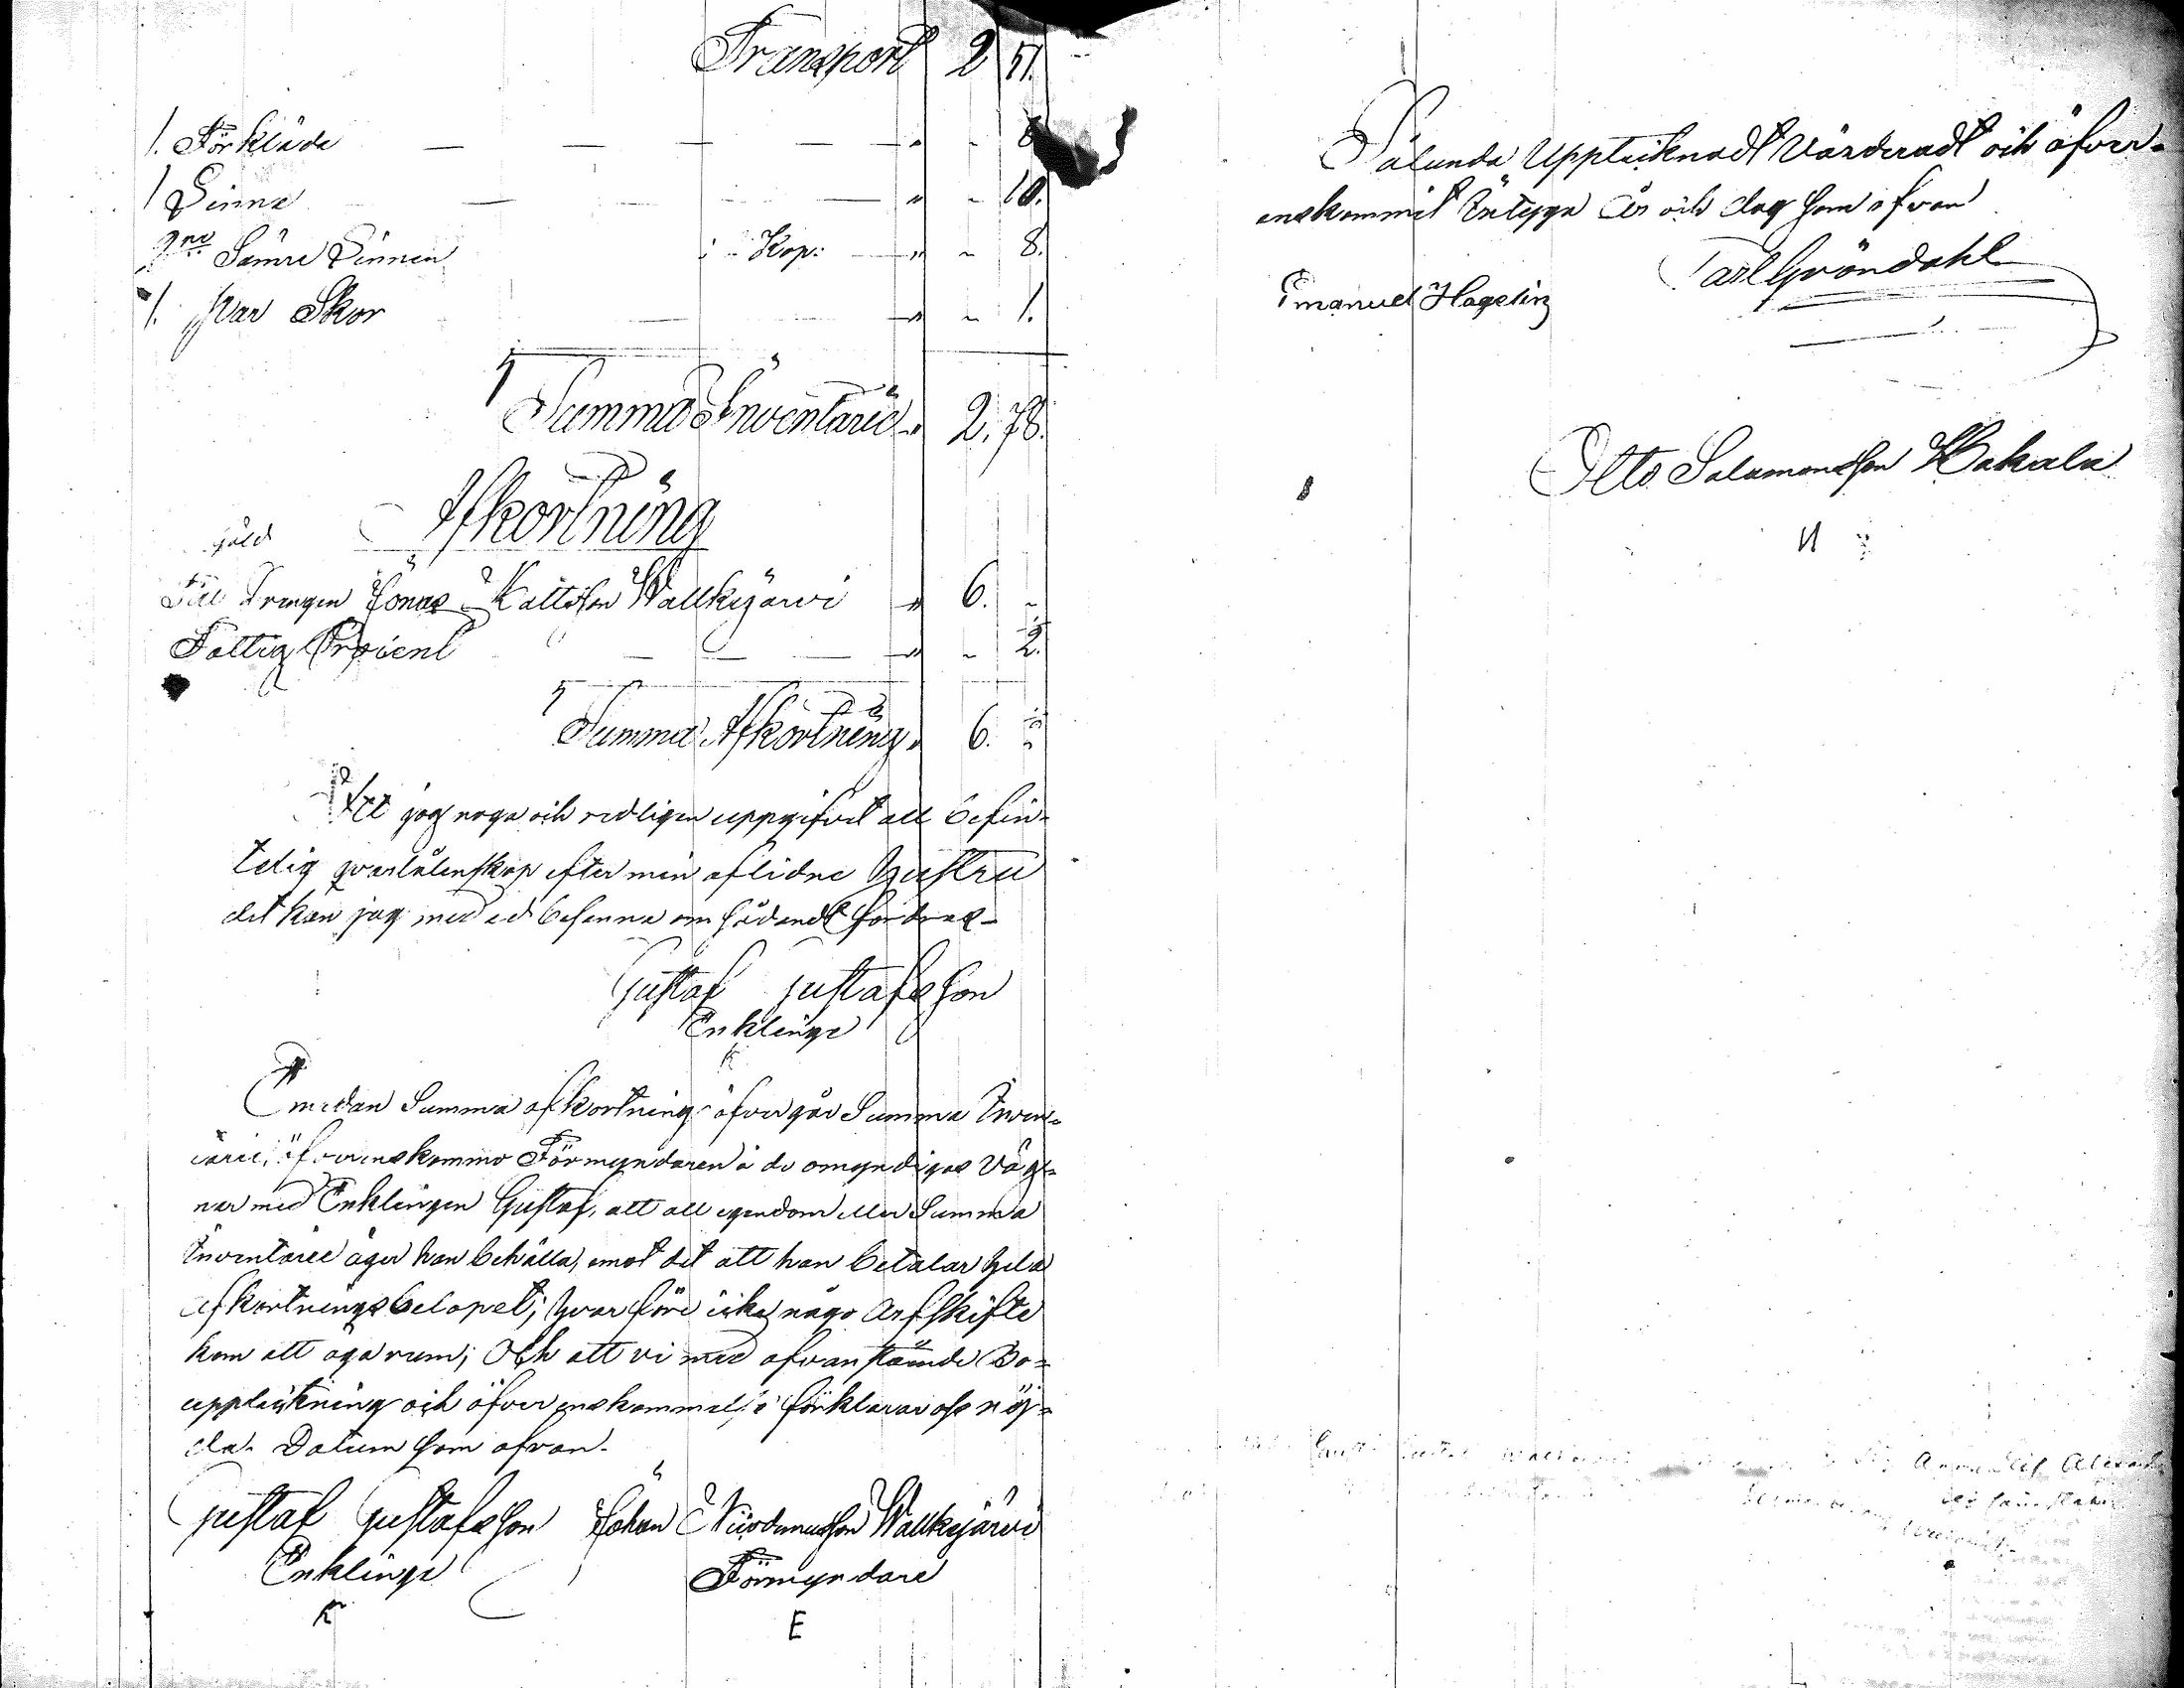 Transport 2 51.
1. Förkläde — — — — — " -
1 Qvinna — — — " - 10.
Sämre Dinnen Kop: — " - 8.
1. par Skor — — " - 1.
Summa Inventarie " 2. 78.
Afkortning
gäld
Till Drengen Jonas Mattsson Wallkejärvi " 6. -
Fattig Procent — — — " - 2.
Summa Afkortning " 6. 2
Att jag noga och redligen uppgifvit all befin-
telig qvarlåtenskap efter min aflidne hustru
det kan jag med ed besanna om sådandt fordras-
Gustaf Gustafsson
Enklinge
Emedan Summa afkortning öfvergår Summa Inven-
tarie, öfverenskommo Förmyndaren å de omyndigas väg-
nar med Enklingen Gustaf, att all egendom eller Summa
Inventarie äger han behålla, emot det att han betalar hela
afkortningsbelopet; hvarföre icke någo arfskifte
kom att äga rum; Och att vi med ofvanstående Bo-
uppteikning och öfverenskommelse förklarar oss nöj-
da. Datum som ofvan.
Gustaf Gustafsson Johan Wallkejärvi
Enklinge Förmyndare
K E
Sålunda Upptecknadt Värderadt och öfver-
enskommit Intyga År och dag som ofvan
Carl Gröndahl
Emanuel Hagelin
Otto Salamonsson Hakala